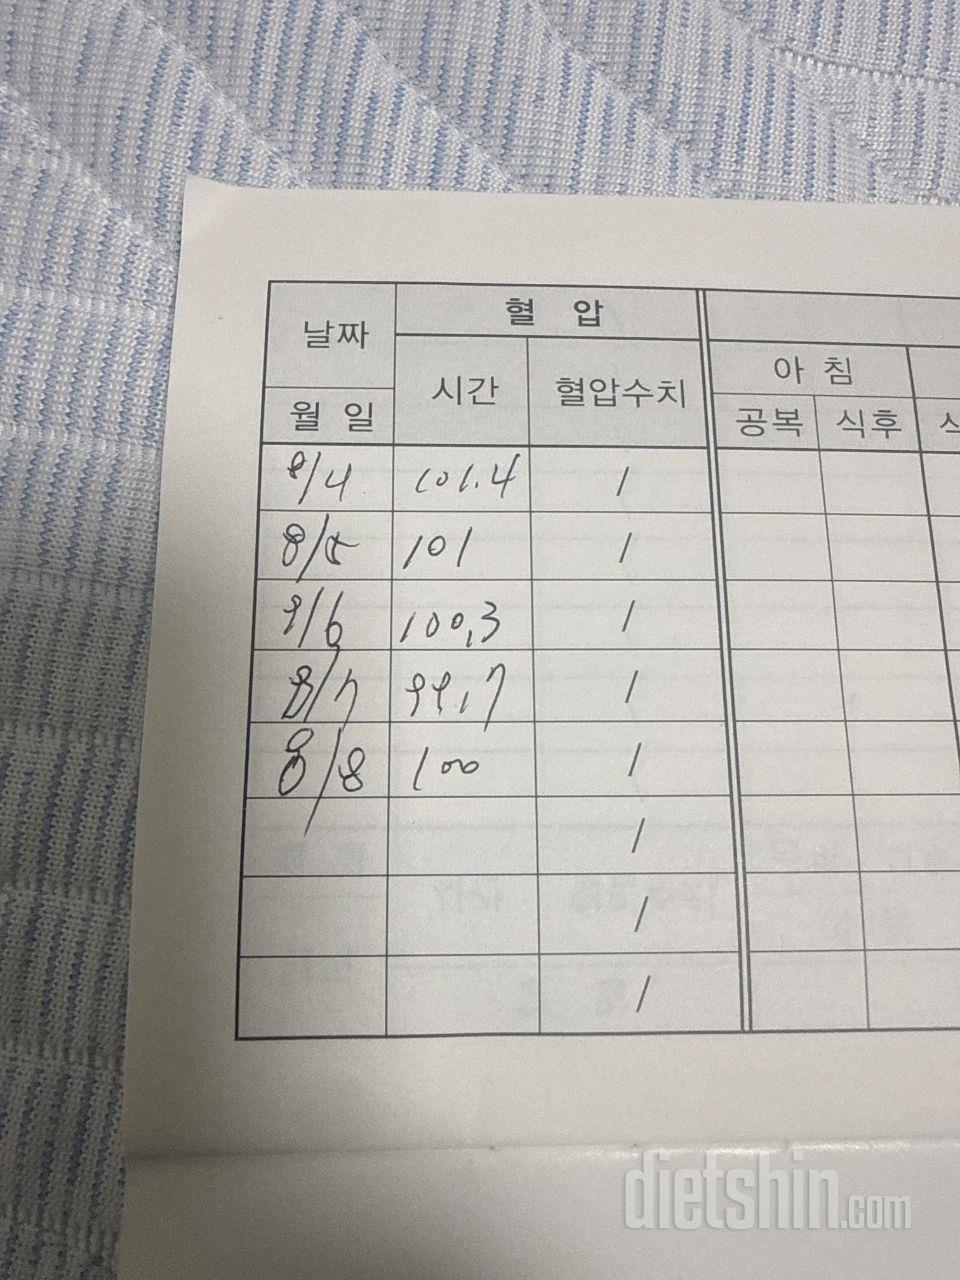 날짜 혈 압
시간 혈압수치 아 침
월 일 공복 식후 식
8/4 101.4 /
8/5 101 /
8/6 100.3 /
8/7 99.7 /
8/8 100 /
/
/
/
dietshin.com